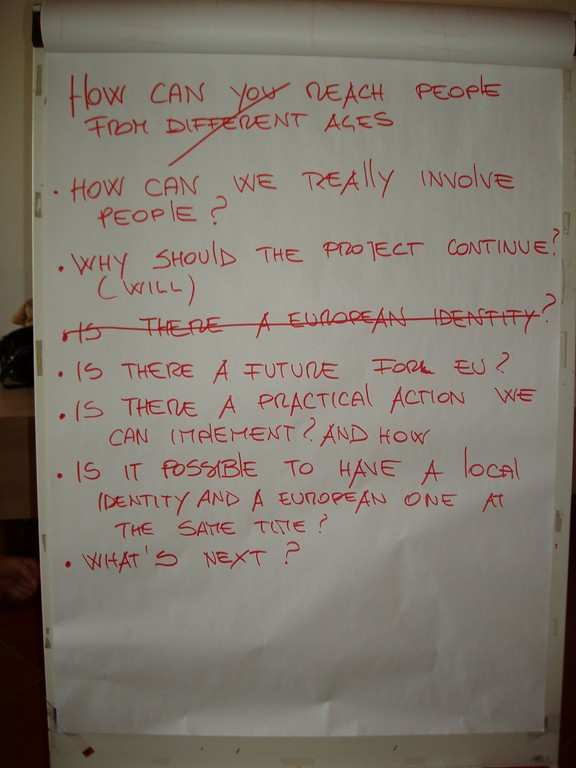 HOW CAN YOU REACH PEOPLE
FROM DIFFERENT AGES
• HOW CAN WE REALLY INVOLVE
PEOPLE?
• WHY SHOULD THE PROJECT CONTINUE?
(WILL)
• IS THERE A EUROPEAN IDENTITY?
• IS THERE A FUTURE FOR EU?
• IS THERE A PRACTICAL ACTION WE
CAN IMPLEMENT? AND HOW
• IS IT POSSIBLE TO HAVE A LOCAL
IDENTITY AND A EUROPEAN ONE AT
THE SAME TIME?
• WHAT'S NEXT?